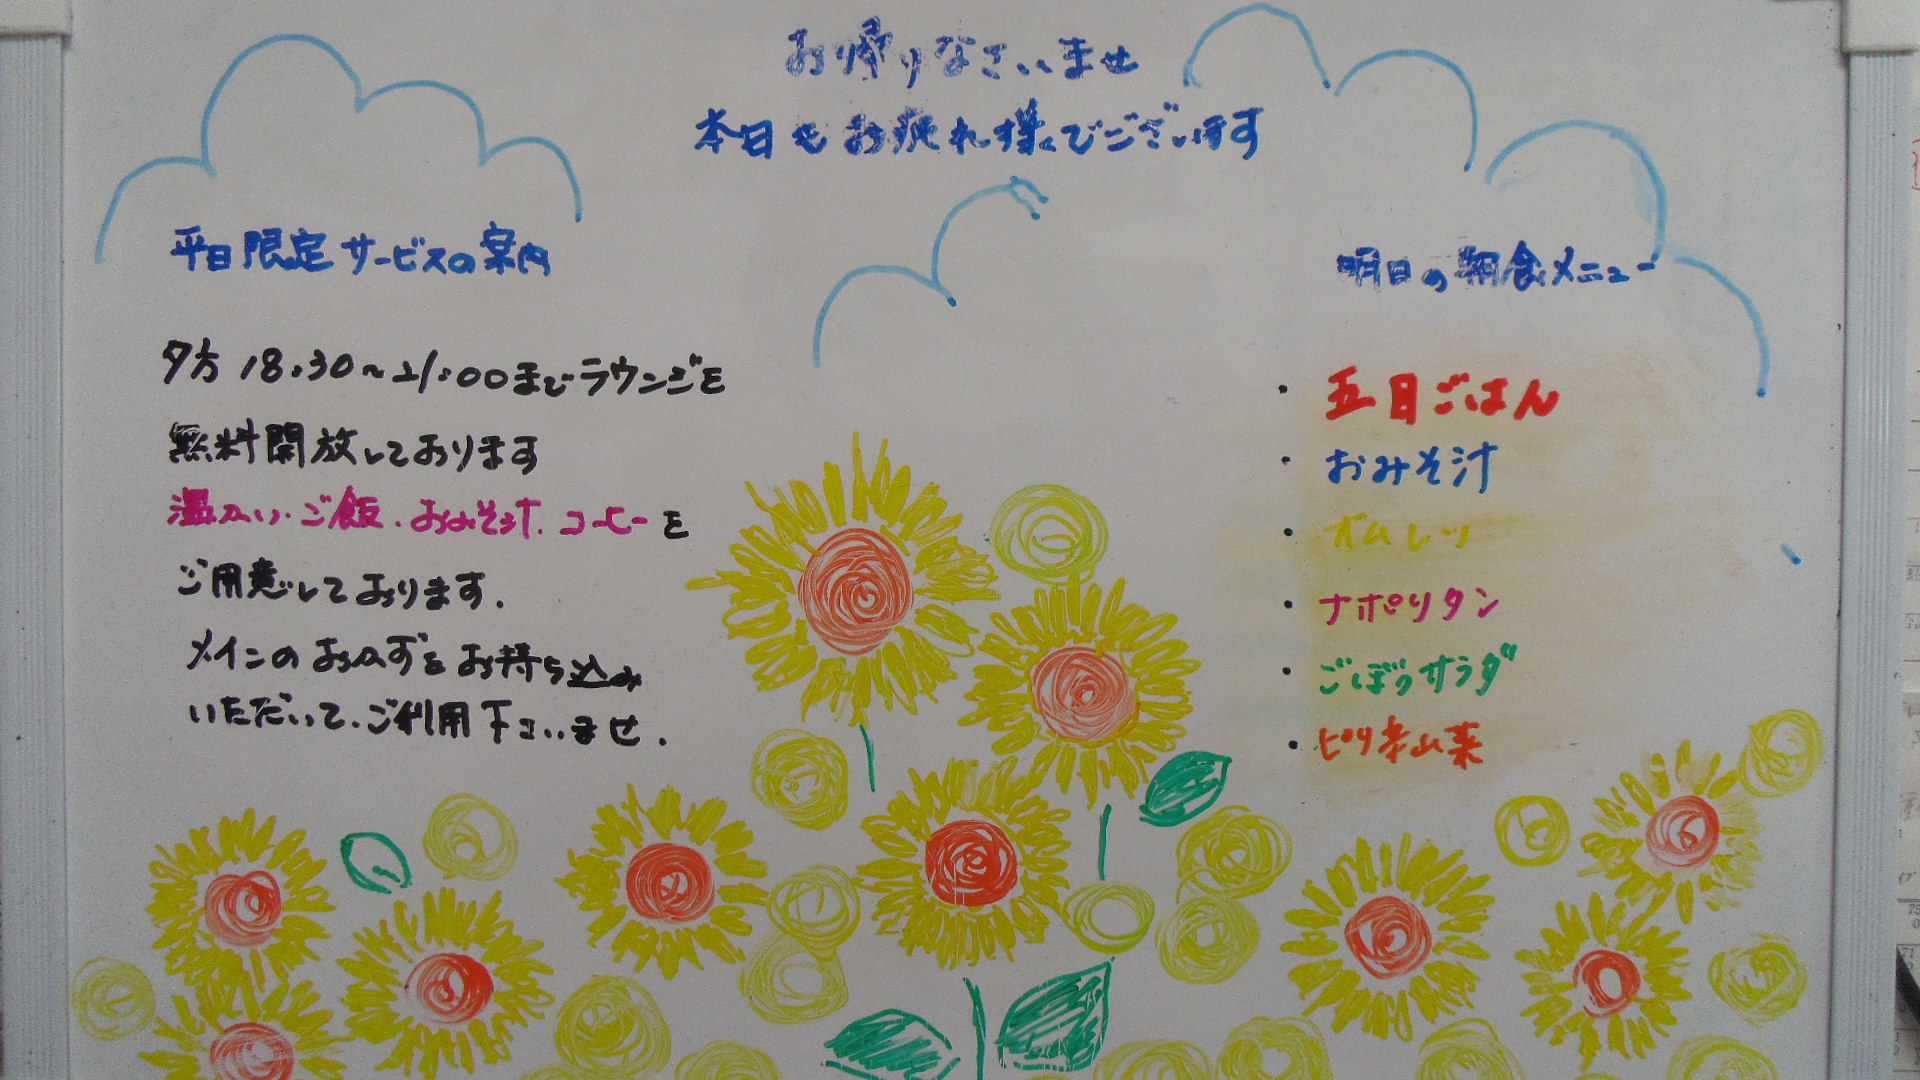 お帰りなさいませ
本日もお疲れ様でございます
平日限定サービスの案内
夕方 18:30～21:00までラウンジを
無料開放しております
温かい・ご飯・おみそ汁・コーヒーを
ご用意しております.
メインのおかずをお持ち込み
いただいて、ご利用下さいませ.
明日の朝食メニュー
・五目ごはん
・おみそ汁
・オムレツ
・ナポリタン
・ごぼうサラダ
・ピリ辛山菜